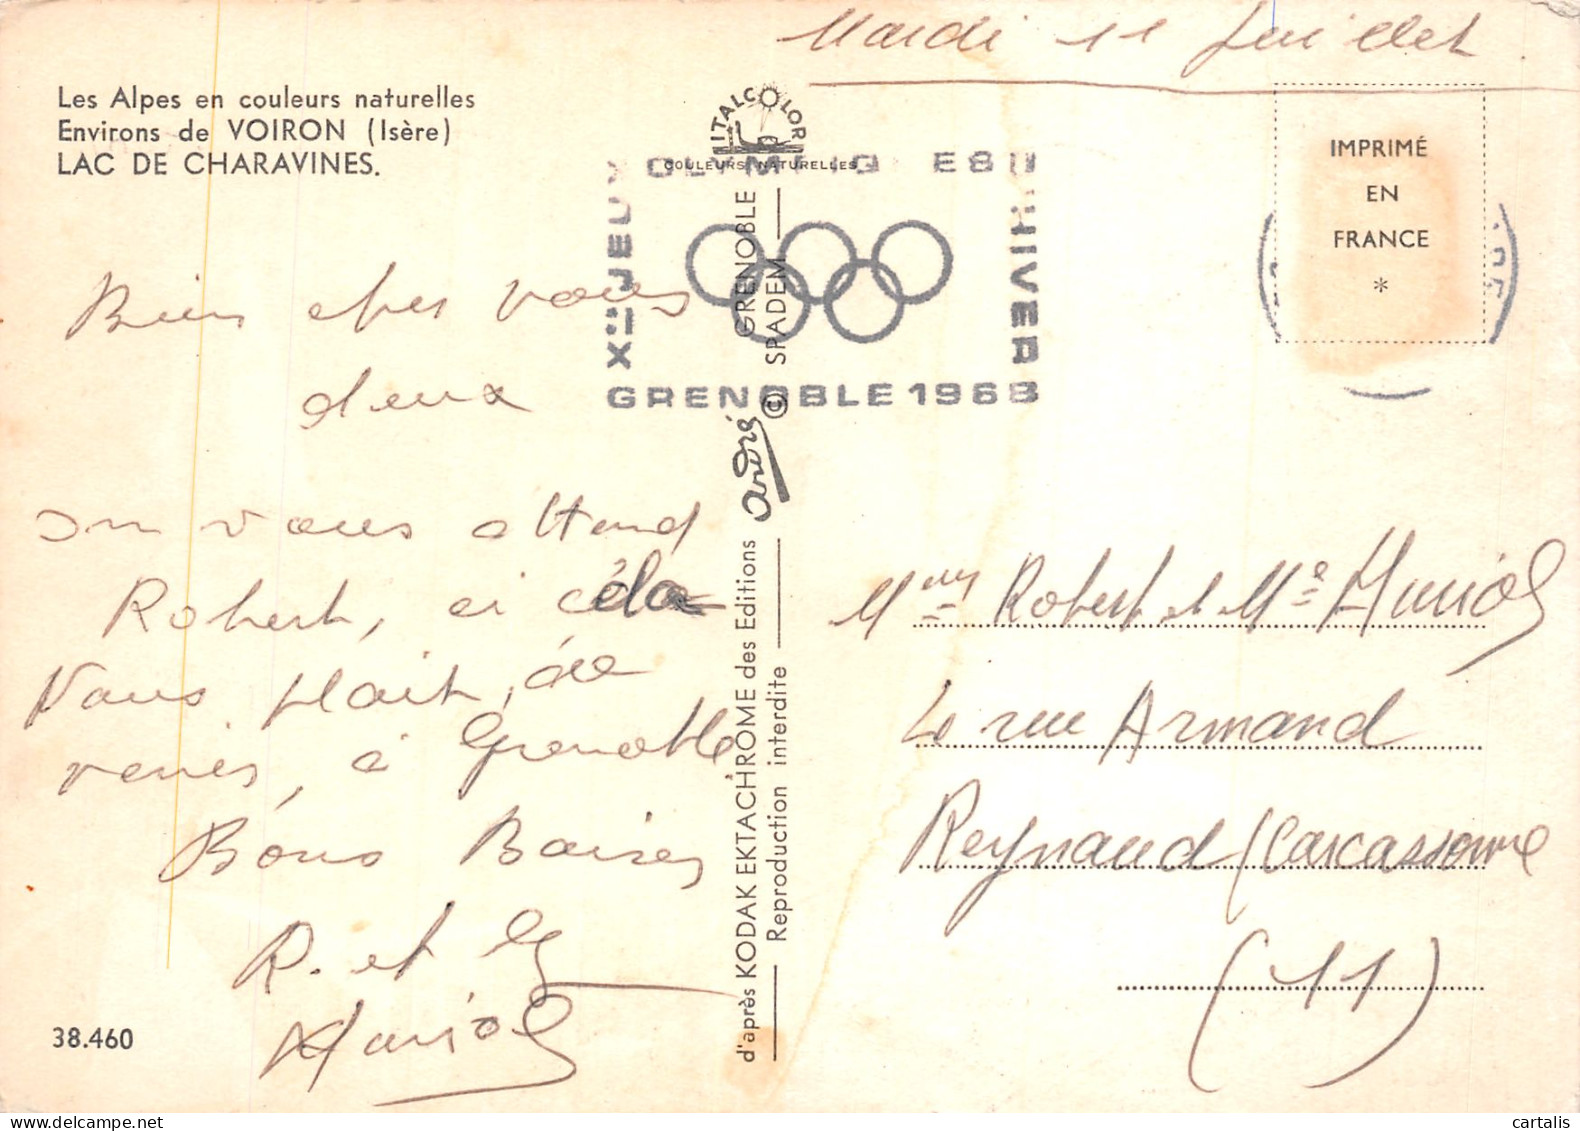 Mardi 11 Juillet
Les Alpes en couleurs naturelles
Environs de VOIRON (Isère)
LAC DE CHARAVINES.
ITALCOLOR
COULEURS NATURELLES
IMPRIMÉ
EN
FRANCE
*
XES JEUX OLYMPIQUES D'HIVER
GRENOBLE 1968
Bien chers vous
deux
on vous attend
Robert, si cela
vous plait, de
venir, à Grenoble
Bons Baisers
R. et
38.460
d'après KODAK EKTACHROME des Editions André GRENOBLE
Reproduction interdite © SPADEM
Robert et Me
rue Armand
Reynaud Carcassonne
(11)
cartalis